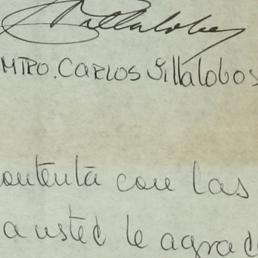 Villalobos
MTRO. CARLOS VIllAlObOS
contenta con las
a usted le agrad